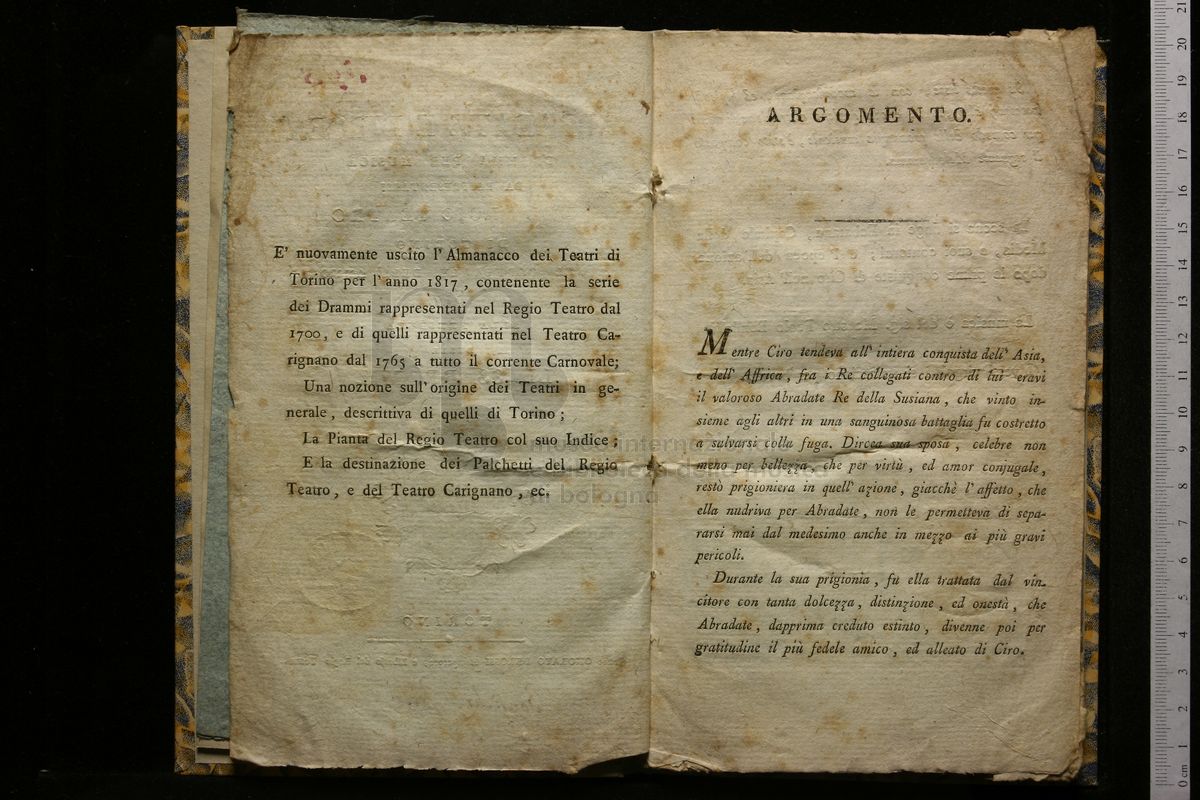 E' nuovamente uscito l'Almanacco dei Teatri di
Torino per l'anno 1817, contenente la serie
dei Drammi rappresentati nel Regio Teatro dal
1700, e di quelli rappresentati nel Teatro Ca-
rignano dal 1765 a tutto il corrente Carnovale;
Una nozione sull'origine dei Teatri in ge-
nerale, descrittiva di quelli di Torino;
La Pianta del Regio Teatro col suo Indice;
E la destinazione dei Palchetti del Regio
Teatro, e del Teatro Carignano, ec.
ARGOMENTO.
Mentre Ciro tendeva all' intiera conquista dell' Asia,
e dell' Affrica, fra i Re collegati contro di lui eravi
il valoroso Abradate Re della Susiana, che vinto in-
sieme agli altri in una sanguinosa battaglia fu costretto
a salvarsi colla fuga. Dircea sua sposa, celebre non
meno per bellezza, che per virtù, ed amor conjugale,
restò prigioniera in quell' azione, giacchè l' affetto, che
ella nudriva per Abradate, non le permetteva di sepa-
rarsi mai dal medesimo anche in mezzo ai più gravi
pericoli.
Durante la sua prigionìa, fu ella trattata dal vin-
citore con tanta dolcezza, distinzione, ed onestà, che
Abradate, dapprima creduto estinto, divenne poi per
gratitudine il più fedele amico, ed alleato di Ciro.